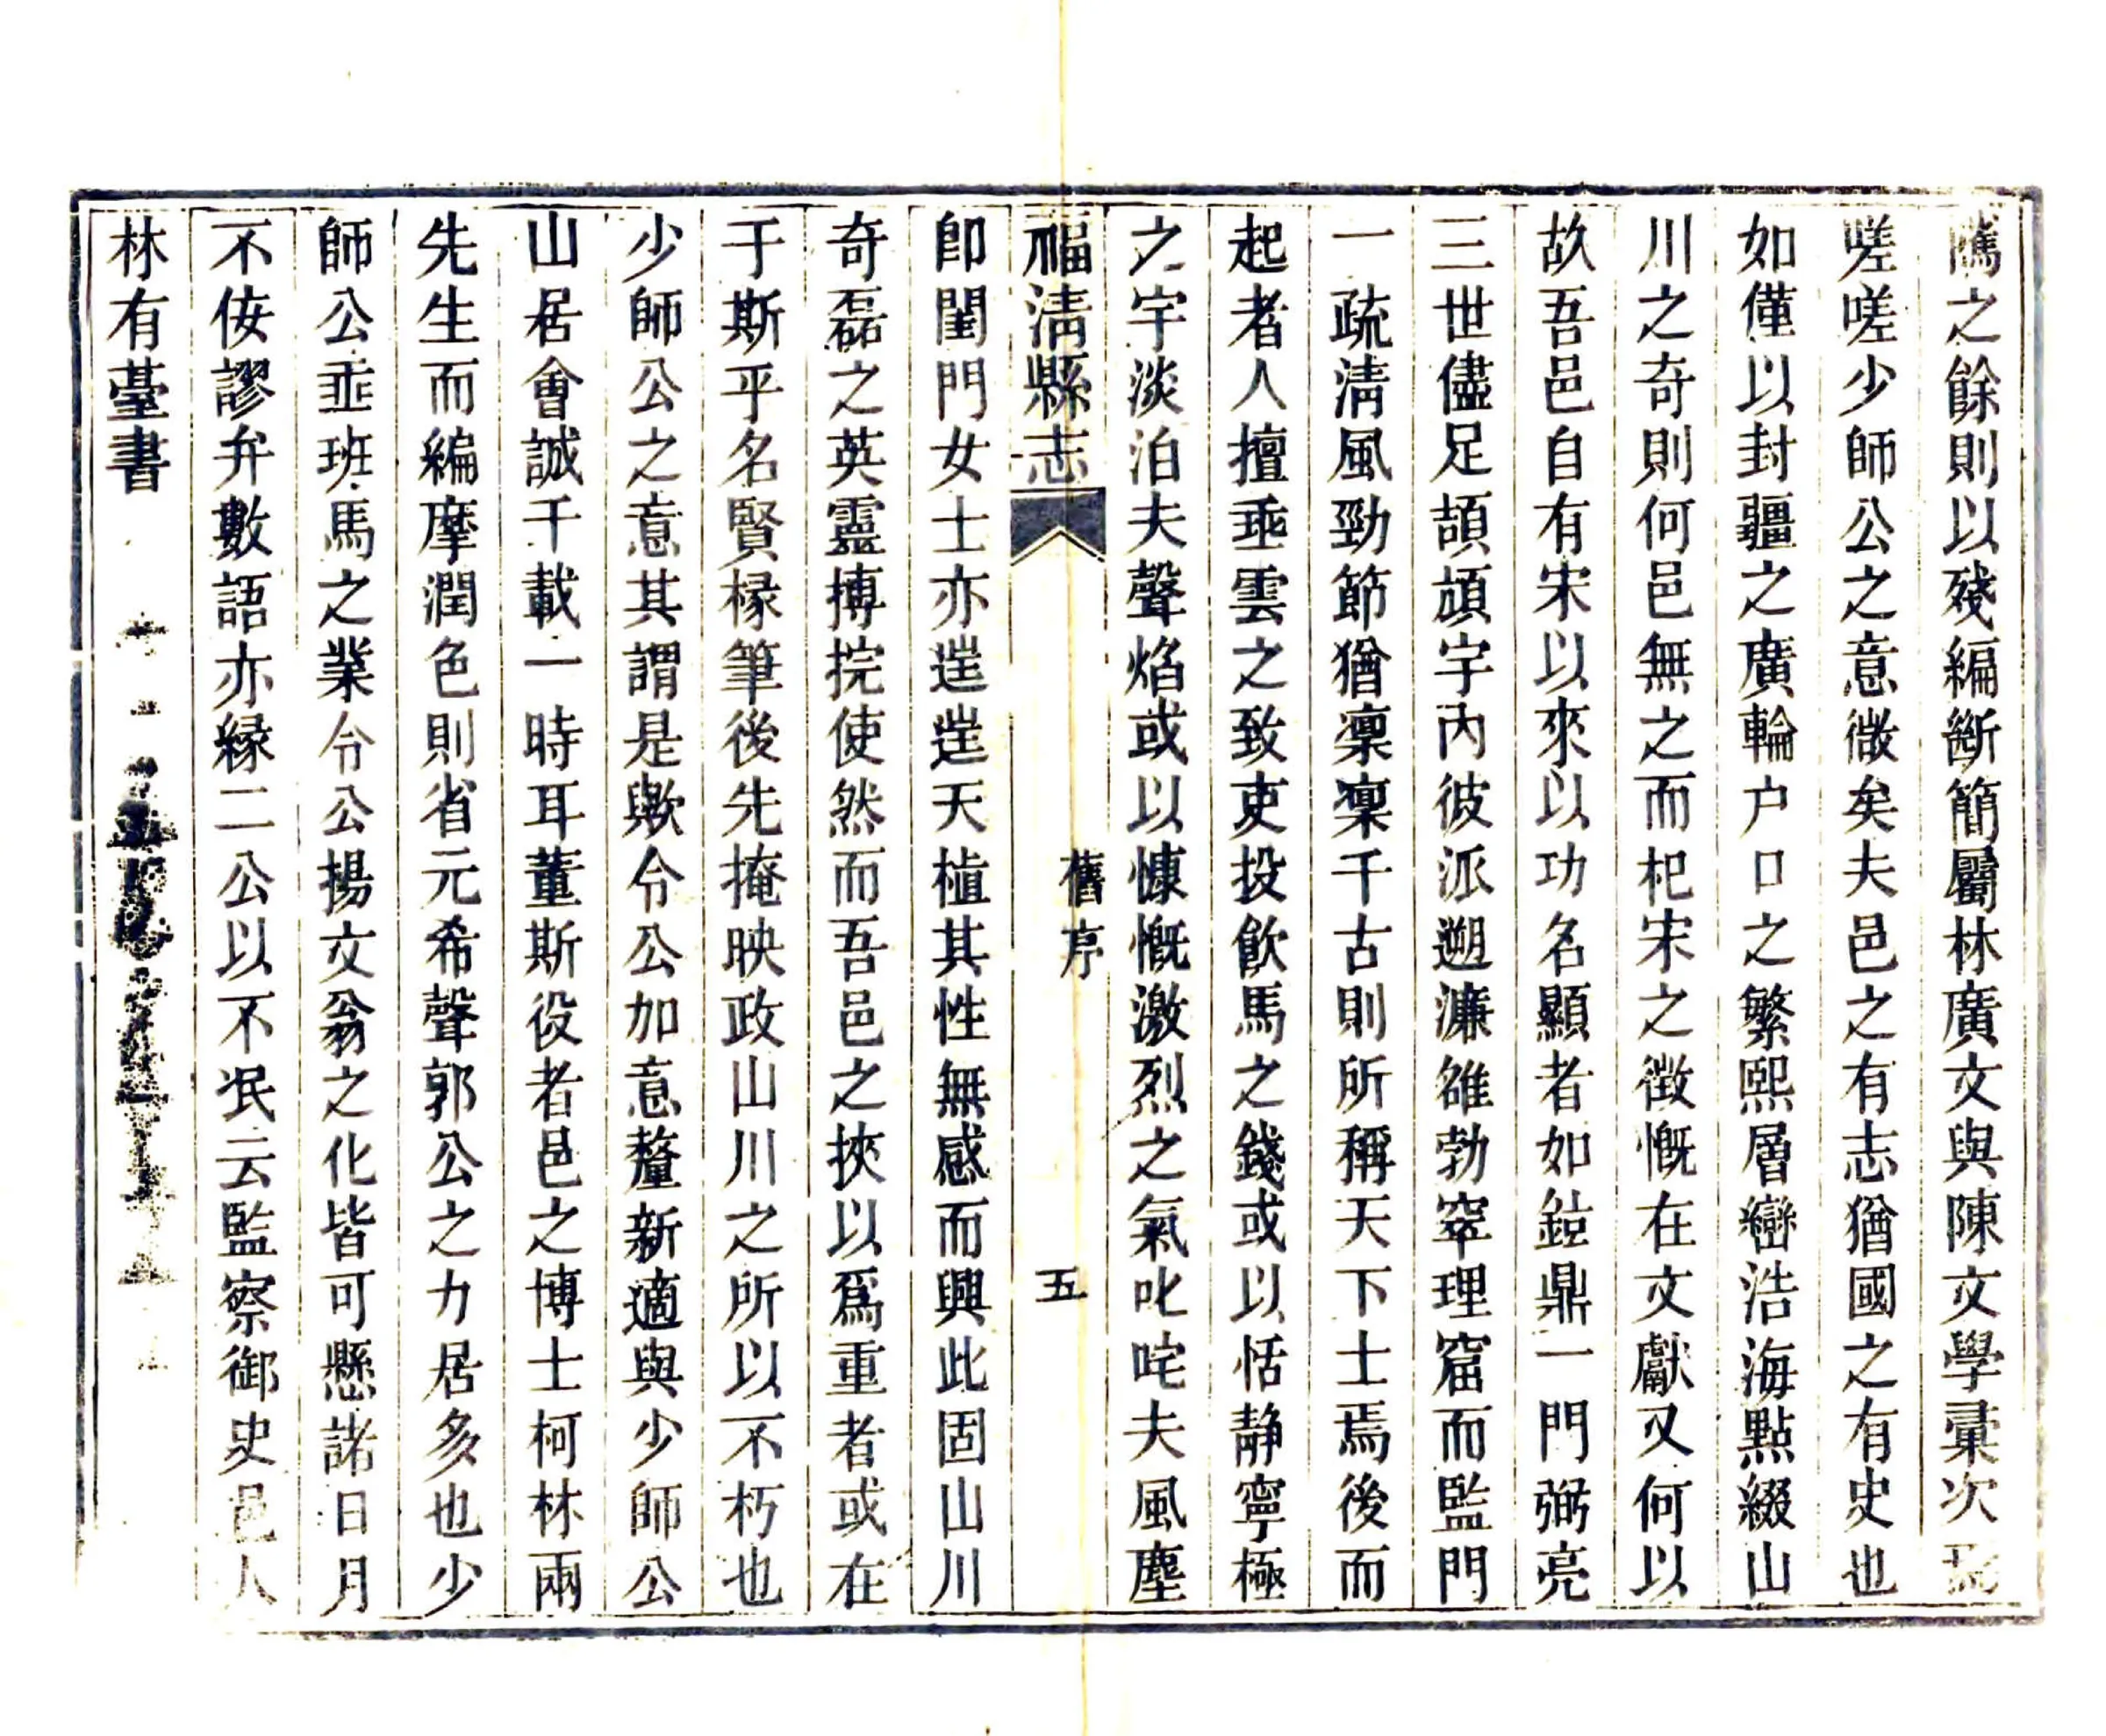 之餘則以殘編斷簡屬林廣文與陳文學彚次
嗟嗟少師公之意微矣夫邑之有志猶國之有史也
如僅以封疆之廣輪户口之繁熙層巒浩海點綴山
川之奇則何邑無之而杞宋之徴慨在文獻又何以
故吾邑自有宋以來以功名顯者如鉉鼎一門弼亮
三世儘足頡頏宇內彼派遡濂雒勃窣理窟而監門
一疏淸風勁節猶凛凛千古則所稱天下士焉後而
起者人擅乖雲之致吏投飮馬之錢或以恬静寧極
之宇淡泊夫聲焰或以慷慨激烈之氣叱咤夫風塵
福淸縣志
舊序
五
卽閨門女士亦𨓏𨓏天植其性無感而興此固山川
奇磊之英靈摶捖使然而吾邑之挾以爲重者或在
于斯乎名賢椽筆後先掩映政山川之所以不朽也
少師公之意其謂是歟令公加意釐新適與少師公
山居會誠千載一時耳董斯役者邑之博士柯林兩
先生而編摩潤色則省元希聲郭公之力居多也少
師公乖班馬之業令公揚文翁之化皆可懸諸日月
不佞謬弁數語亦緣二公以不泯云監察御史邑人
林有薹書